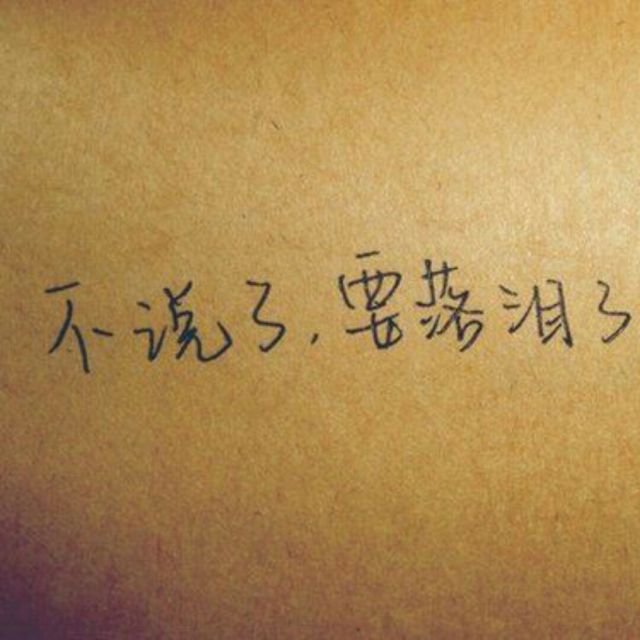 不说了,要落泪了